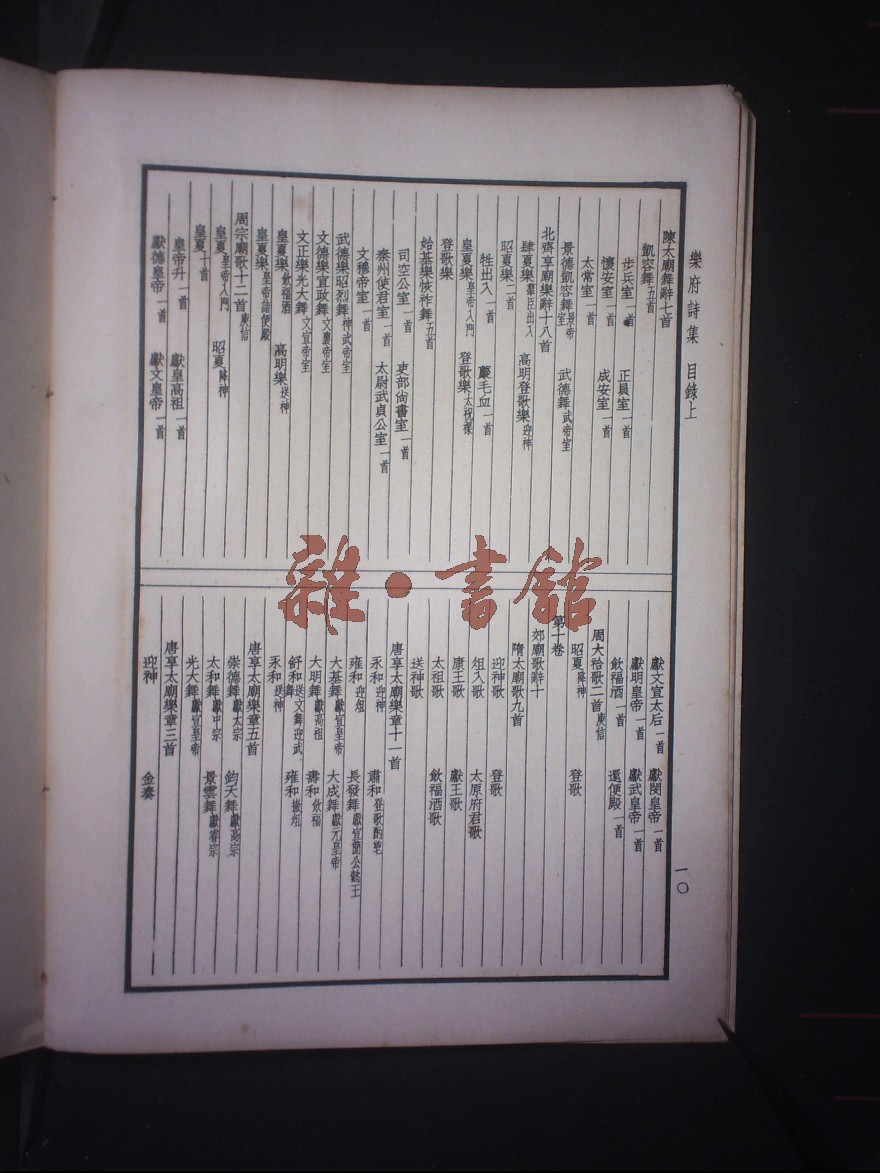 樂府詩集 目錄上
陳太廟舞辭七首
凱容舞五首
步兵室一首 正員室一首
懷安室一首 成安室一首
太常室一首
景德凱容舞景帝室 武德舞武帝室
北齊享廟樂辭十八首
肆夏樂羣臣出入 高明登歌樂迎神
昭夏樂二首
牲出入一首 薦毛血一首
皇夏樂皇帝入門 登歌樂太祝祼
登歌樂
始基樂恢祚舞五首
司空公室一首 吏部尚書室一首
秦州使君室一首 太尉武貞公室一首
文穆帝室一首
武德樂昭烈舞神武帝室
文德樂宣政舞文襄帝室
文正樂光大舞文宣帝室
皇夏樂飲福酒 高明樂送神
皇夏樂皇帝詣便殿
周宗廟歌十二首庾信
皇夏皇帝入門 昭夏降神
皇夏十首
皇帝升一首 獻皇高祖一首
獻德皇帝一首 獻文皇帝一首
獻文宣太后一首 獻閔皇帝一首
獻明皇帝一首 獻武皇帝一首
飲福酒一首 還便殿一首
周大祫歌二首庾信
昭夏降神 登歌
第十卷
郊廟歌辭十
隋太廟歌九首
迎神歌 登歌
俎入歌 太原府君歌
康王歌 獻王歌
太祖歌 飲福酒歌
送神歌
唐享太廟樂章十一首
永和迎神 肅和登歌酌鬯
雍和迎俎 長發舞獻宣簡公懿王
大基舞獻宣皇帝 大成舞獻元皇帝
大明舞獻高祖 壽和飲福
舒和送文舞迎武舞 雍和撤俎
永和送神
唐享太廟樂章五首
崇德舞獻太宗 鈞天舞獻高宗
太和舞獻中宗 景雲舞獻睿宗
光大舞獻宣皇帝
唐享太廟樂章三首
迎神 金奏
一〇
雜·書館